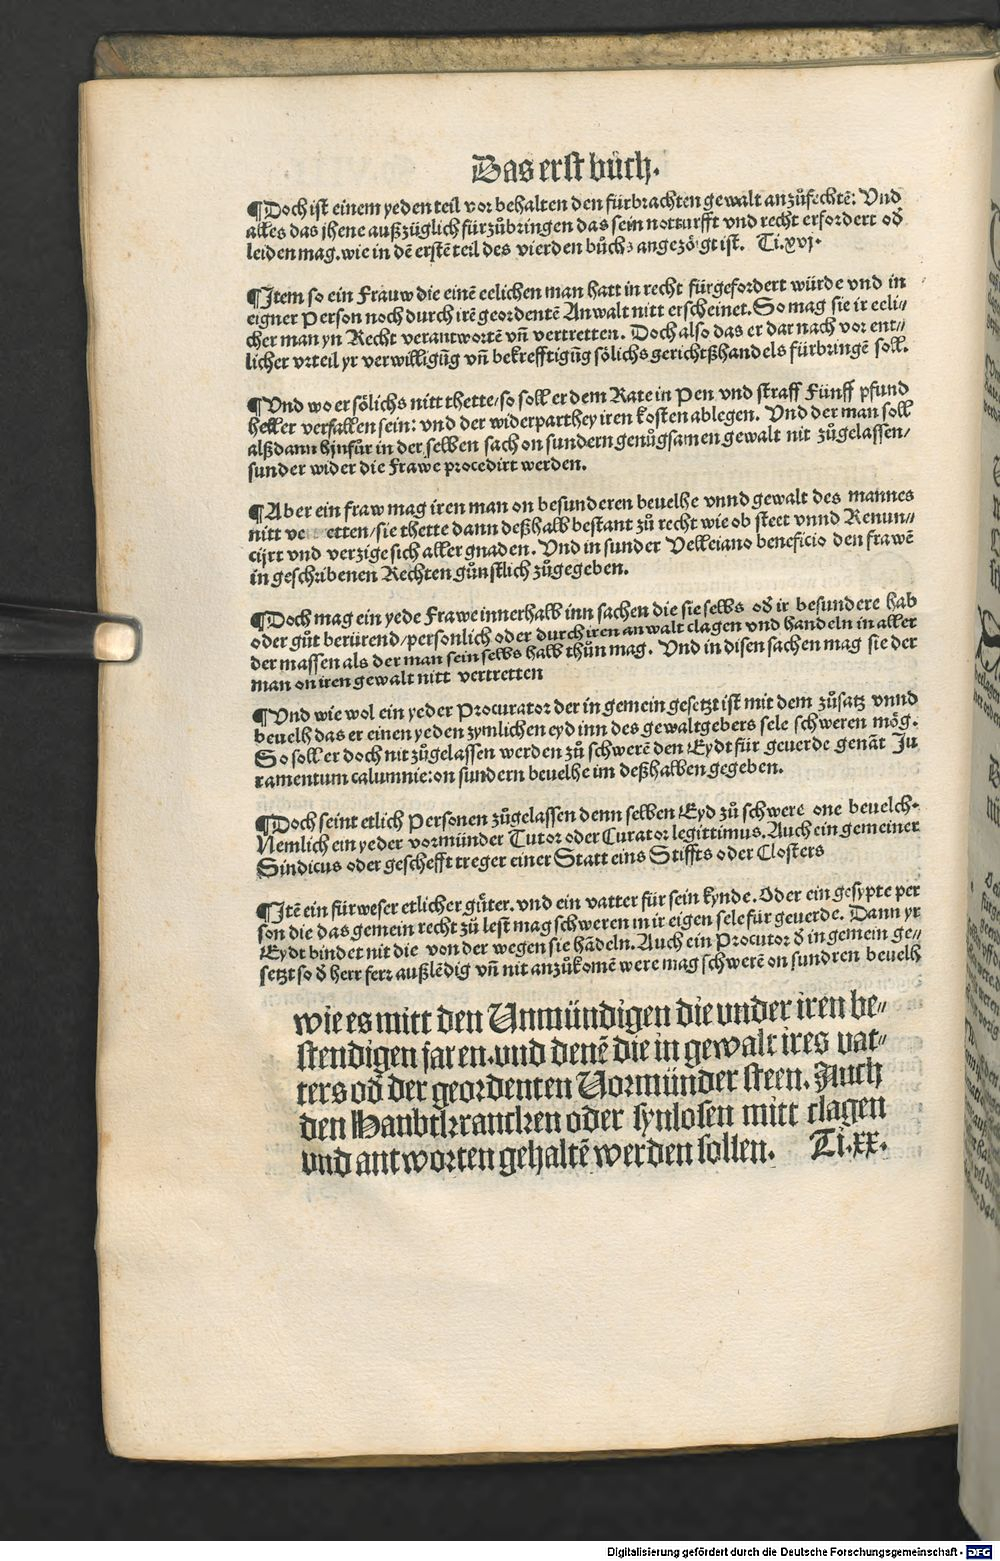 Das erst bůch.
¶Doch ist einem yeden teil vor behalten den fürbrachten gewalt anzůfechtē: Vnd
alles das jhene außzüglich fürzůbringen das sein notturfft vnd recht erfordert od̛
leiden mag. wie in dē erstē teil des vierden bůchs angezögt ist. Ti.xvj.
¶Item so ein Frauw die einē eelichen man hatt in recht fürgefordert würde vnd in
eigner Person noch durch irē geordentē Anwalt nitt erscheinet. So mag sie ir eeli⸗
cher man yn Recht verantwortē vn̄ vertretten. Doch also das er dar nach vor ent⸗
licher vrteil yr verwilligūg vn̄ bekrefftigūg sölichs gerichtßhandels fürbringē soll.
¶Vnd wo er sölichs nitt thette/so soll er dem Rate in Pen vnd straff Fünff pfund
heller verfallen sein: vnd der widerparthey iren kosten ablegen. Vnd der man soll
alßdann hinfür in der selben sach on sundern genůgsamen gewalt nit zůgelassen/
sunder wider die Frawe procedirt werden.
¶Aber ein fraw mag iren man on besunderen beuelhe vnnd gewalt des mannes
nitt ve etten/sie thette dann deßhalb bestant zů recht wie ob steet vnnd Renun⸗
cijrt vnd verzige sich aller gnaden. Vnd in sunder Velleiano beneficio den frawē
in geschribenen Rechten gůnstlich zůgegeben.
¶Doch mag ein yede Frawe innerhalb inn sachen die sie selbs od̛ ir besundere hab
oder gůt berürend/personlich oder durch iren anwalt clagen vnd handeln in aller
der massen als der man sein selbs halb thůn mag. Vnd in disen sachen mag sie der
man on iren gewalt nitt vertretten
¶Vnd wie wol ein yeder Procurator der in gemein gesetzt ist mit dem zůsatz vnnd
beuelh das er einen yeden zymlichen eyd inn des gewaltgebers sele schweren mög.
So soll er doch nit zůgelassen werden zů schwerē den Eydt für geuerde genāt Ju
ramentum calumnie: on sundern beuelhe im deßhalben gegeben.
¶Doch seint etlich Personen zůgelassen denn selben Eyd zů schwere one beuelch.
Nemlich ein yeder vormünder Tutor oder Curator legittimus. Auch ein gemeiner
Sindicus oder geschefft treger einer Statt eins Stiffts oder Closters
¶Itē ein fürweser etlicher gůter. vnd ein vatter für sein kynde. Oder ein gesypte per
son die das gemein recht zů lest mag schweren in ir eigen sele für geuerde. Dann yr
Eydt bindet nit die von der wegen sie hādeln. Auch ein Procutor d̛ in gemein ge⸗
setzt so d̛ herr ferr außlēdig vn̄ nit anzůkomē were mag schwerē on sundren beuelh
wie es mitt den Unmündigen die under iren be⸗
stendigen jaren. und denē die in gewalt ires vat⸗
ters od̛ der geordenten Vormünder steen. Auch
den Haubtkrancken oder synlosen mitt clagen
und antworten gehaltē werden sollen. Ti.xx.
Digitalisierung gefördert durch die Deutsche Forschungsgemeinschaft - DFG